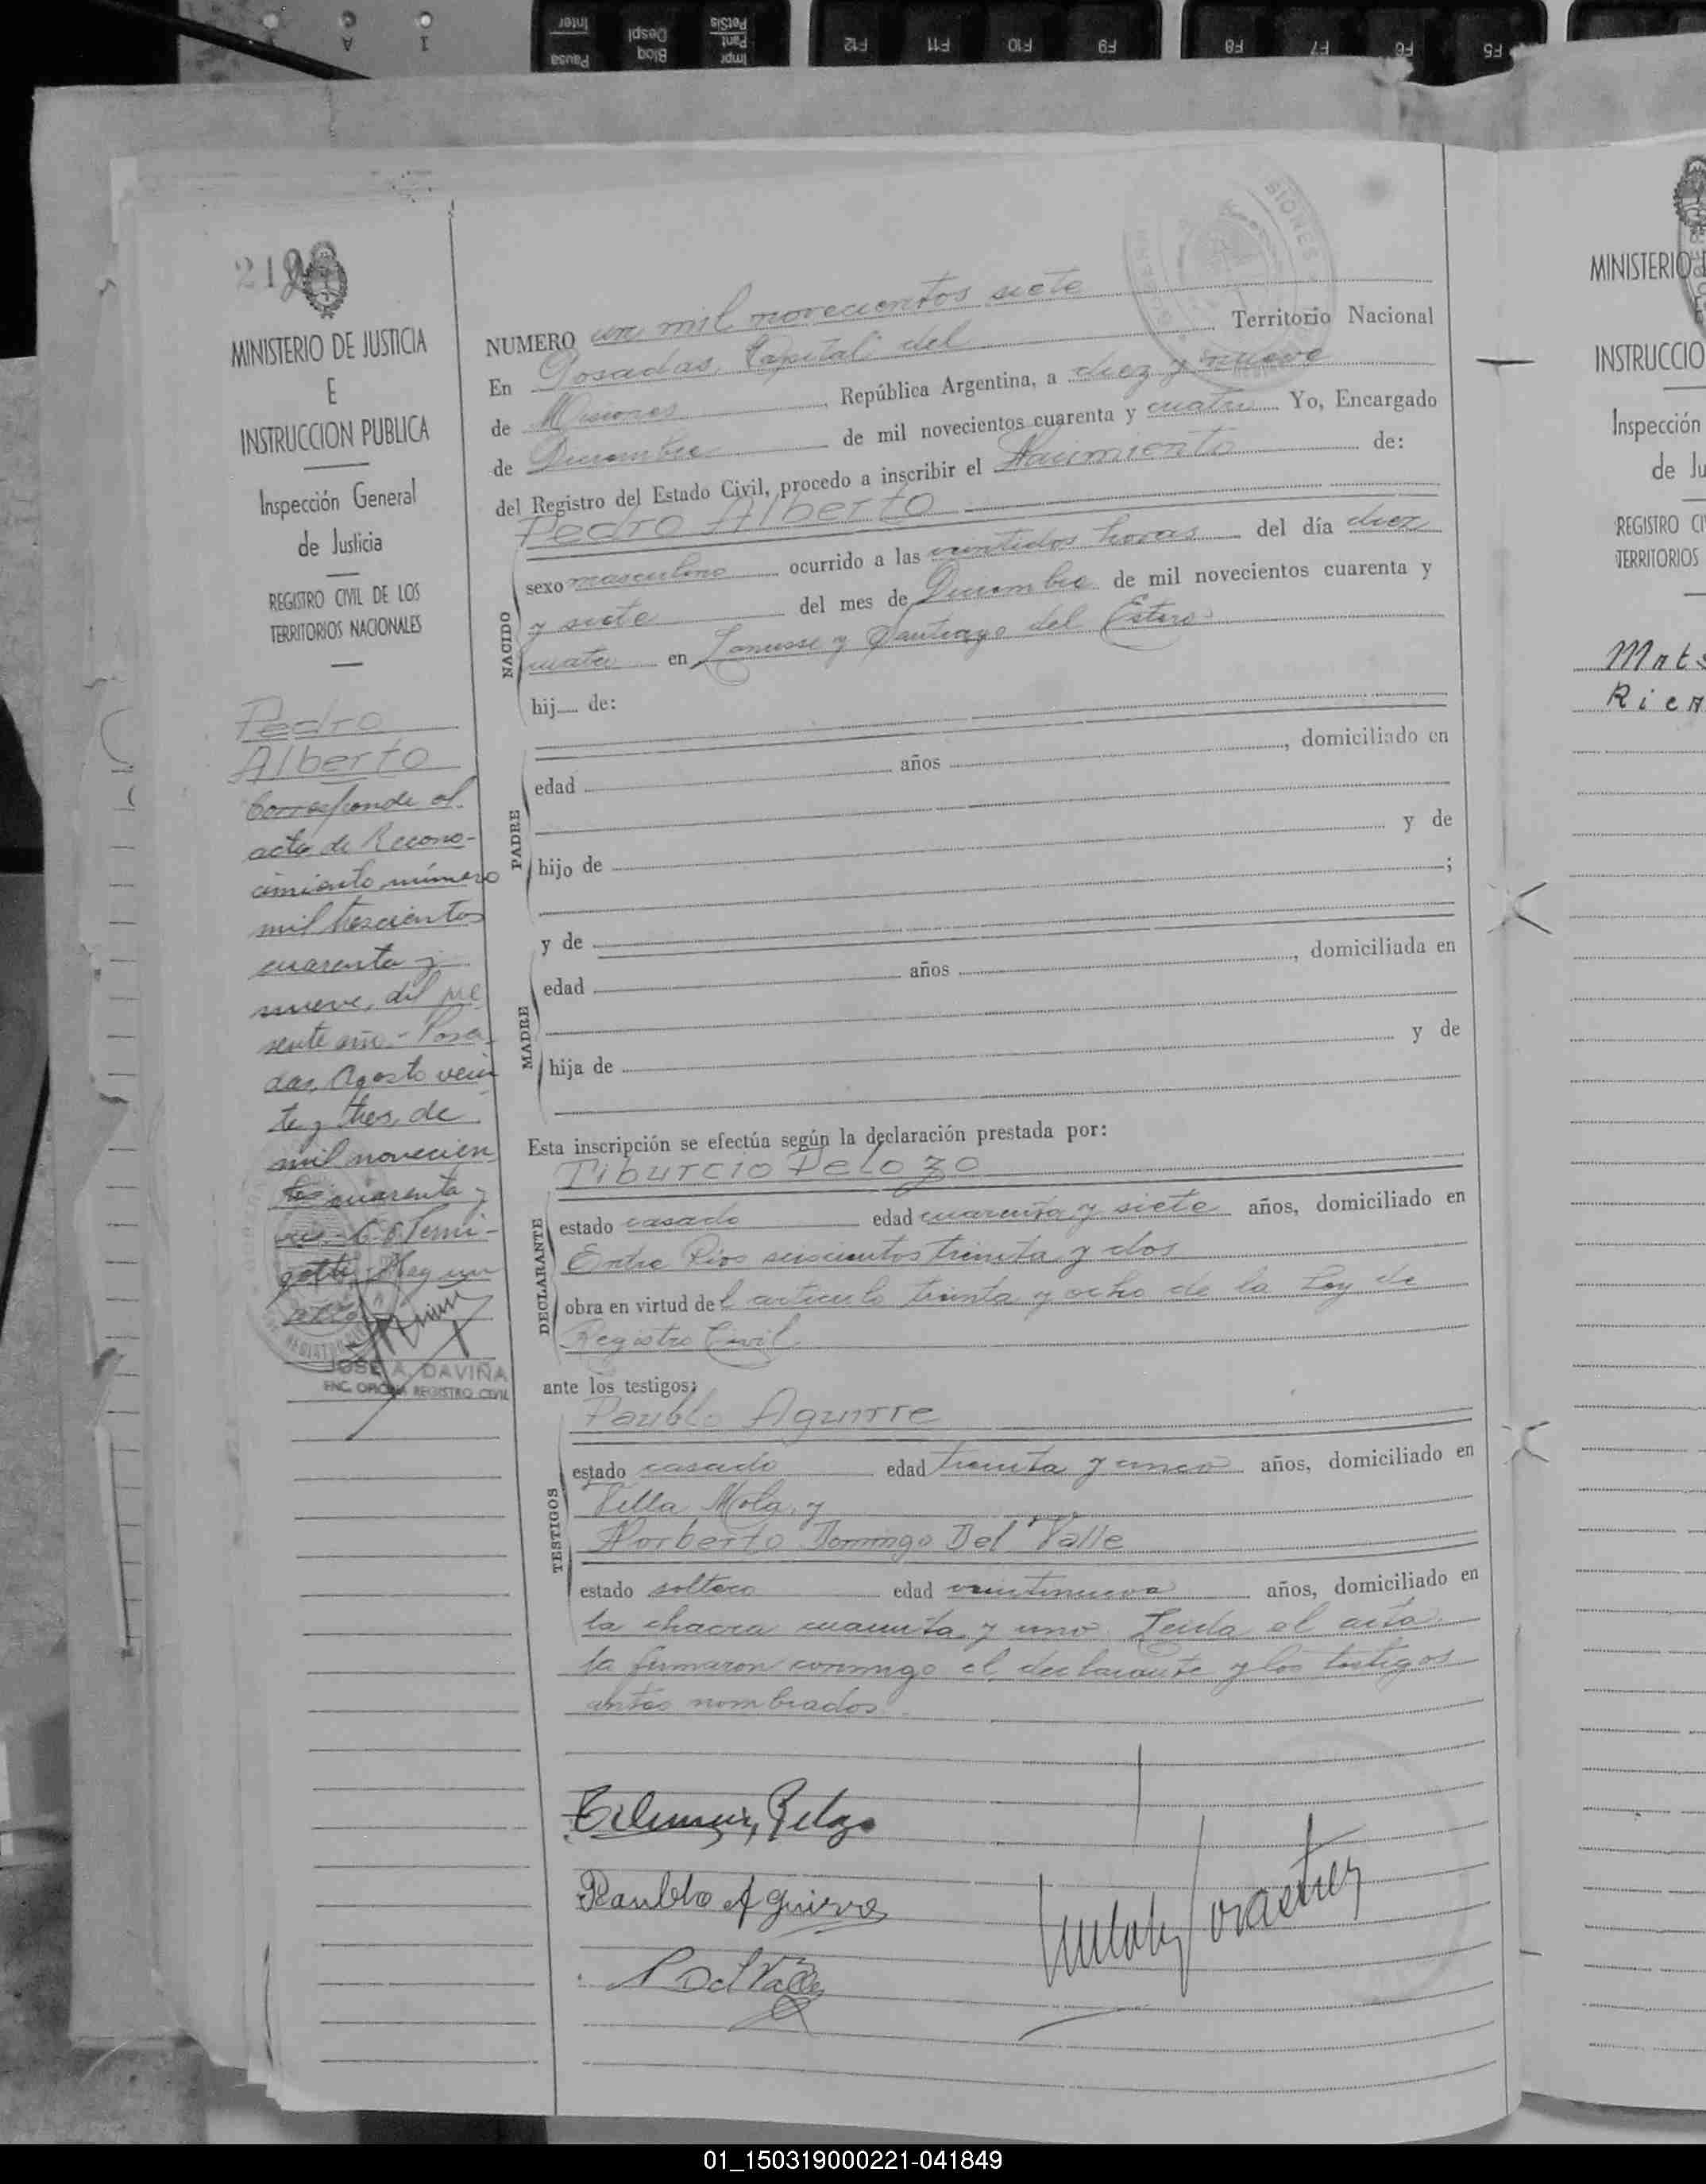 Inter
Pausa
Despl
Bloq
PetSis
Pant
Impr
F12
F11
F10
F9
F8
F7
F6
F5
MINISTERIO DE JUSTICIA
E
INSTRUCCION PUBLICA
Inspección General
de Justicia
REGISTRO CIVIL DE LOS
TERRITORIOS NACIONALES
Pedro
Alberto
Corresponde al
acta de Recono-
cimiento número
mil trescientos
cuarenta y
nueve, del pre
sente año.- Posa
das, Agosto vein
te y tres, de
mil novecien
tos cuarenta y
JOSE A. DAVIÑA
ENC. OFICINA REGISTRO CIVIL
NUMERO un mil novecientos siete
En Posadas, Capital del Territorio Nacional
de Misiones, República Argentina, a diez y nueve
de Diciembre de mil novecientos cuarenta y cuatro Yo, Encargado
del Registro del Estado Civil, procedo a inscribir el Nacimiento de:
Pedro Alberto
NACIDO
sexo masculino ocurrido a las veintidos horas del día diez
y siete del mes de Diciembre de mil novecientos cuarenta y
cuatro en Lanusse y Santiago del Estero
hij de:
PADRE
edad años, domiciliado en
hijo de y de
;
y de
MADRE
edad años, domiciliada en
hija de y de
Esta inscripción se efectúa según la declaración prestada por:
Tiburcio Pelozo
DECLARANTE
estado casado edad cuarenta y siete años, domiciliado en
Entre Rios seiscientos treinta y dos
obra en virtud del articulo treinta y ocho de la Ley de
Registro Civil
ante los testigos:
Paublo Aguirre
TESTIGOS
estado casado edad treinta y cinco años, domiciliado en
Villa Mola, y
Norberto Domingo Del Valle
estado soltero edad veintinueve años, domiciliado en
la chacra cuarenta y uno. Leida el acta
la firmaron conmigo el declarante y los testigos
antes nombrados.
Paublo Aguirre
N Del Valle
MINISTERIO
INSTRUCCIO
Inspección
de Ju
REGISTRO CI
TERRITORIOS
01_150319000221-041849